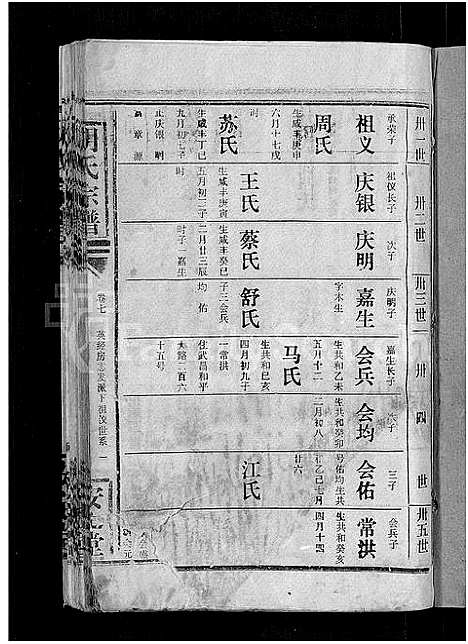 卅一世
卅二世
卅三世
卅四世
卅五世
承荣子
祖义
生咸丰庚申
六月十七戌
时
周氏
苏氏
生咸丰丁巳
九月初七
子庆银 明
祖义长子
庆银
王氏
生咸丰庚寅
五月初三子
时
次子
庆明
蔡氏
生咸丰癸巳
二月廿三辰
时子一嘉生
庆明子
嘉生
字木生
舒氏
子三会兵
均 佑
嘉生长子
会兵
生共和乙未
五月十二
马氏
生共和己亥
四月初九子
一常洪
住武昌和平
大路二百六
十五号
次子
会均
生共和癸卯
二月初八
三子
会佑
号佑均生共
和乙巳七月
廿六
江氏
会兵子
常洪
生共和癸亥
四月十四
氏宗谱
卷七
英经房志发派下祖义世系
一